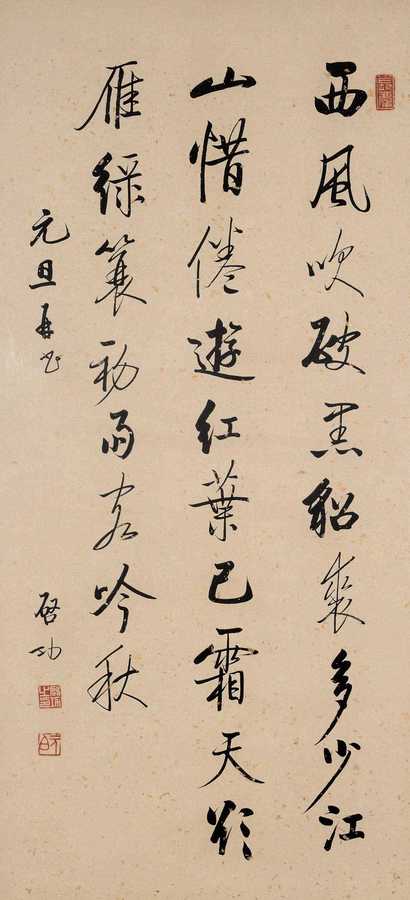 西風吹破黑貂裘多少江
山惜倦遊紅葉已霜天欲
雁綠簑初雨客吟秋
元旦再書
啓功
啓功之印
元白